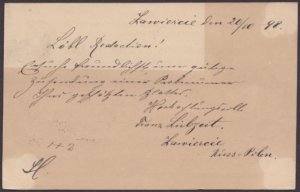 Zawiercie den 20/10 98.
Löbl. Redaction!
Ersuche freundlichst um gütige
Zusendung einer Probenummer
Ihres geschätzten Blattes.
Hochachtungsvoll
Franz Lubzeit.
Zawiercie
Russ-Polen.